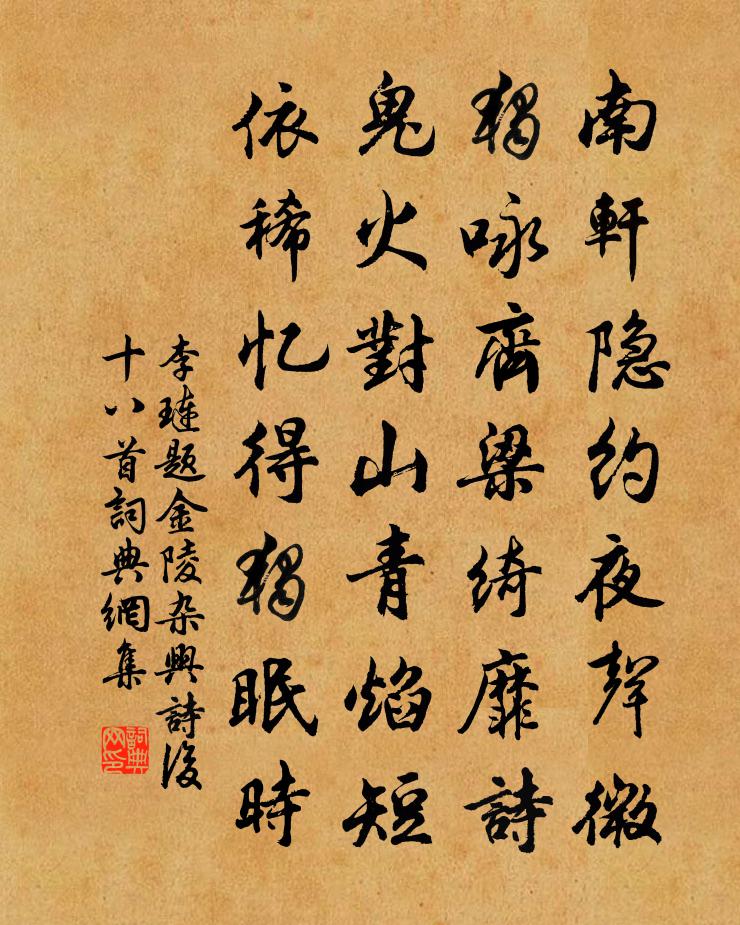 南軒隐約夜聲微
獨咏齊梁綺靡詩
鬼火對山青焰短
依稀忆得獨眠時
李琏題金陵杂興詩後
十八首詞典網集
詞典网印